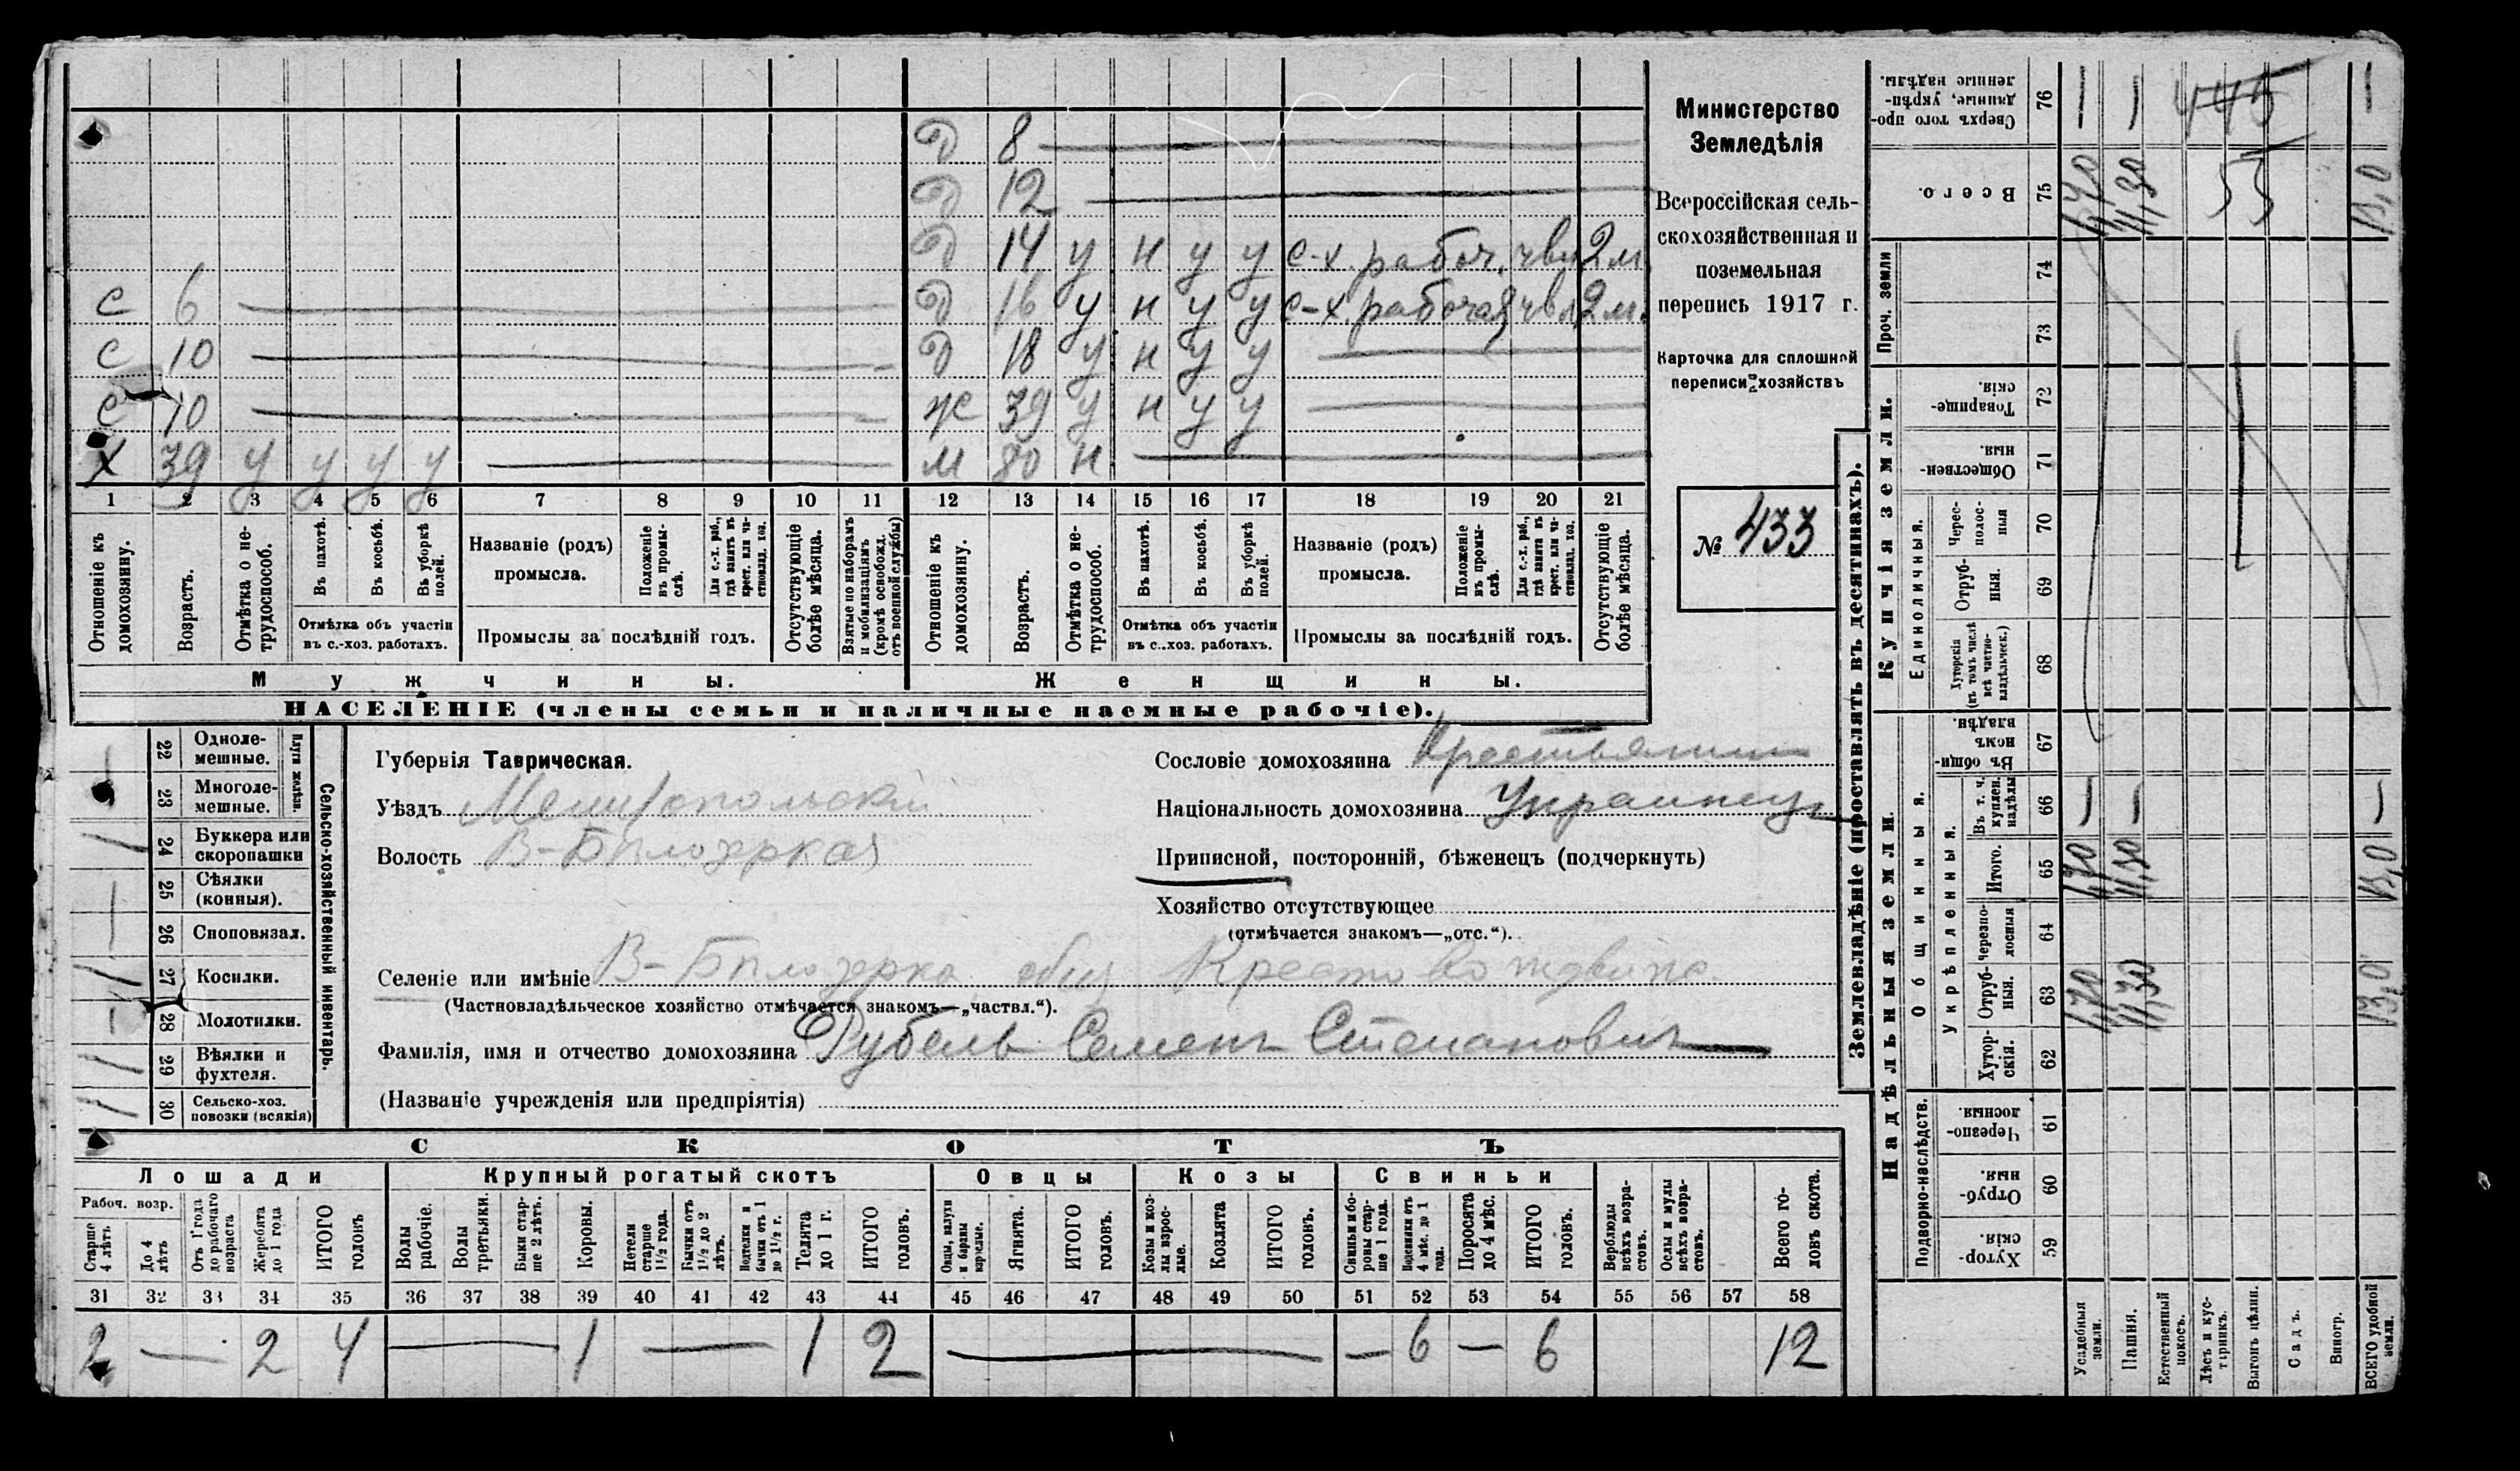 Д 8 —
Д 12 —
Д 14 у н у у с-х. рабоч. чвл 2 м.
С 6 — Д 16 у н у у с-х. рабочая чвл 2 м.
С 10 — Д 18 у н у у —
С 10 — Ж 39 у н у у —
Х 39 у у у у — М 80 н —
1 2 3 4 5 6 7 8 9 10 11 12 13 14 15 16 17 18 19 20 21
Отношеніе къ домохозяину.
Возрастъ.
Отмѣтка о нетрудоспособ.
Въ пахотѣ.
Въ косьбѣ.
Въ уборкѣ полей.
Отмѣтка объ участіи въ с.-хоз. работахъ.
Названіе (родъ) промысла.
Положеніе въ промыслѣ.
Для с.-х. раб., гдѣ занятъ въ крест. или частновлад. хоз.
Промыслы за послѣдній годъ.
Отсутствующіе болѣе мѣсяца.
Взятые по наборамъ и мобилизаціямъ (кромѣ освобожд. отъ военной службы)
Отношеніе къ домохозяину.
Возрастъ.
Отмѣтка о нетрудоспособ.
Въ пахотѣ.
Въ косьбѣ.
Въ уборкѣ полей.
Отмѣтка объ участіи въ с.-хоз. работахъ.
Названіе (родъ) промысла.
Положеніе въ промыслѣ.
Для с.-х. раб., гдѣ занята въ крест. или частновлад. хоз.
Промыслы за послѣдній годъ.
Отсутствующіе болѣе мѣсяца.
Мужчины. Женщины.
НАСЕЛЕНІЕ (члены семьи и наличные наемные рабочіе).
Министерство
Земледѣлія
Всероссійская сель-
скохозяйственная и
поземельная
перепись 1917 г.
Карточка для сплошной
переписи хозяйствъ
№ 433
Плуги желѣзн.
22 Однолемешные. —
23 Многолемешные.
24 Буккера или скоропашки 1
25 Сѣялки (конныя). —
26 Сноповязал. —
27 Косилки.
28 Молотилки. —
29 Вѣялки и фухтеля.
30 Сельско-хоз. повозки (всякія)
Сельско-хозяйственный инвентарь.
Губернія Таврическая.
Уѣздъ Мелитопольский
Волость В-Билозерская
Селеніе или имѣніе В-Билозерка, общ Крестовоздвиже.
(Частновладѣльческое хозяйство отмѣчается знакомъ—„частвл.“).
Фамилія, имя и отчество домохозяина Рубель Семенъ Степановичъ
(Названіе учрежденія или предпріятія)
Сословіе домохозяина Крестьянин
Національность домохозяина Украинецъ
Приписной, посторонній, бѣженецъ (подчеркнуть)
Хозяйство отсутствующее
(отмѣчается знакомъ—„отс.“).
СКОТЪ
Лошади Крупный рогатый скотъ Овцы Козы Свиньи
Рабоч. возр.
Старше 4 лѣтъ
До 4 лѣтъ
Отъ 1 года до рабочаго возраста
Жеребята до 1 года
ИТОГО головъ
Волы рабочіе.
Волы третьяки.
Быки старше 2 лѣтъ.
Коровы.
Нетели старше 1½ года.
Бычки отъ 1½ до 2 лѣтъ.
Подтелки и бычки отъ 1 до 1½ г.
Телята до 1 г.
ИТОГО головъ.
Овцы, валухи и бараны взрослые.
Ягнята.
ИТОГО головъ.
Козы и козлы взрослые.
Козлята
ИТОГО головъ.
Свиньи и боровы старше 1 года.
Подсвинки отъ 4 мѣс. до 1 года.
Поросята до 4 мѣс.
ИТОГО головъ.
Верблюды всѣхъ возрастовъ.
Ослы и мулы всѣхъ возрастовъ.
Всего головъ скота.
31 32 33 34 35 36 37 38 39 40 41 42 43 44 45 46 47 48 49 50 51 52 53 54 55 56 57 58
2 — 2 4 — 1 — 1 2 — — 6 — 6 12
Землевладѣніе (проставлять въ десятинахъ).
Надѣльныя земли. Купчія земли.
Подворно-наслѣдств. Общинныя. Укрѣпленныя. Единоличныя. Проч. земли
59 Хуторскія
60 Отрубныя.
61 Черезполосныя
62 Хуторскія.
63 Отрубныя.
64 Черезполосныя
65 Итого.
66 Въ т. ч. куплен. надѣлы
67 Въ общинномъ владѣн.
68 Хуторскія (въ томъ числѣ всѣ частновладѣльческ.)
69 Отрубныя.
70 Чересполосныя
71 Общественныя.
72 Товарищескія.
73
74
75 Всего.
76 Сверхъ того проданные, укрѣпленные надѣлы.
Усадебныя земли. 1,70 1,70 — 1,70 —
Пашня. 11,30 11,30 — 11,30 —
Естественный покосъ.
Лѣсъ и кустарникъ.
Выгонъ цѣлин.
Садъ.
Виногр.
ВСЕГО удобной земли. 13,0 13,0 — 13,0 —
445
53